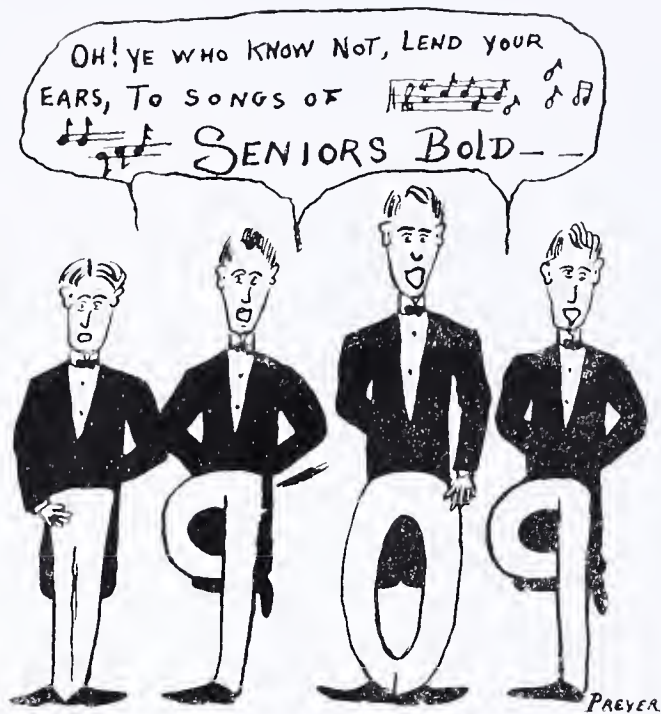 OH! YE WHO KNOW NOT, LEND YOUR
EARS, TO SONGS OF
SENIORS BOLD——
19'09
PREYER